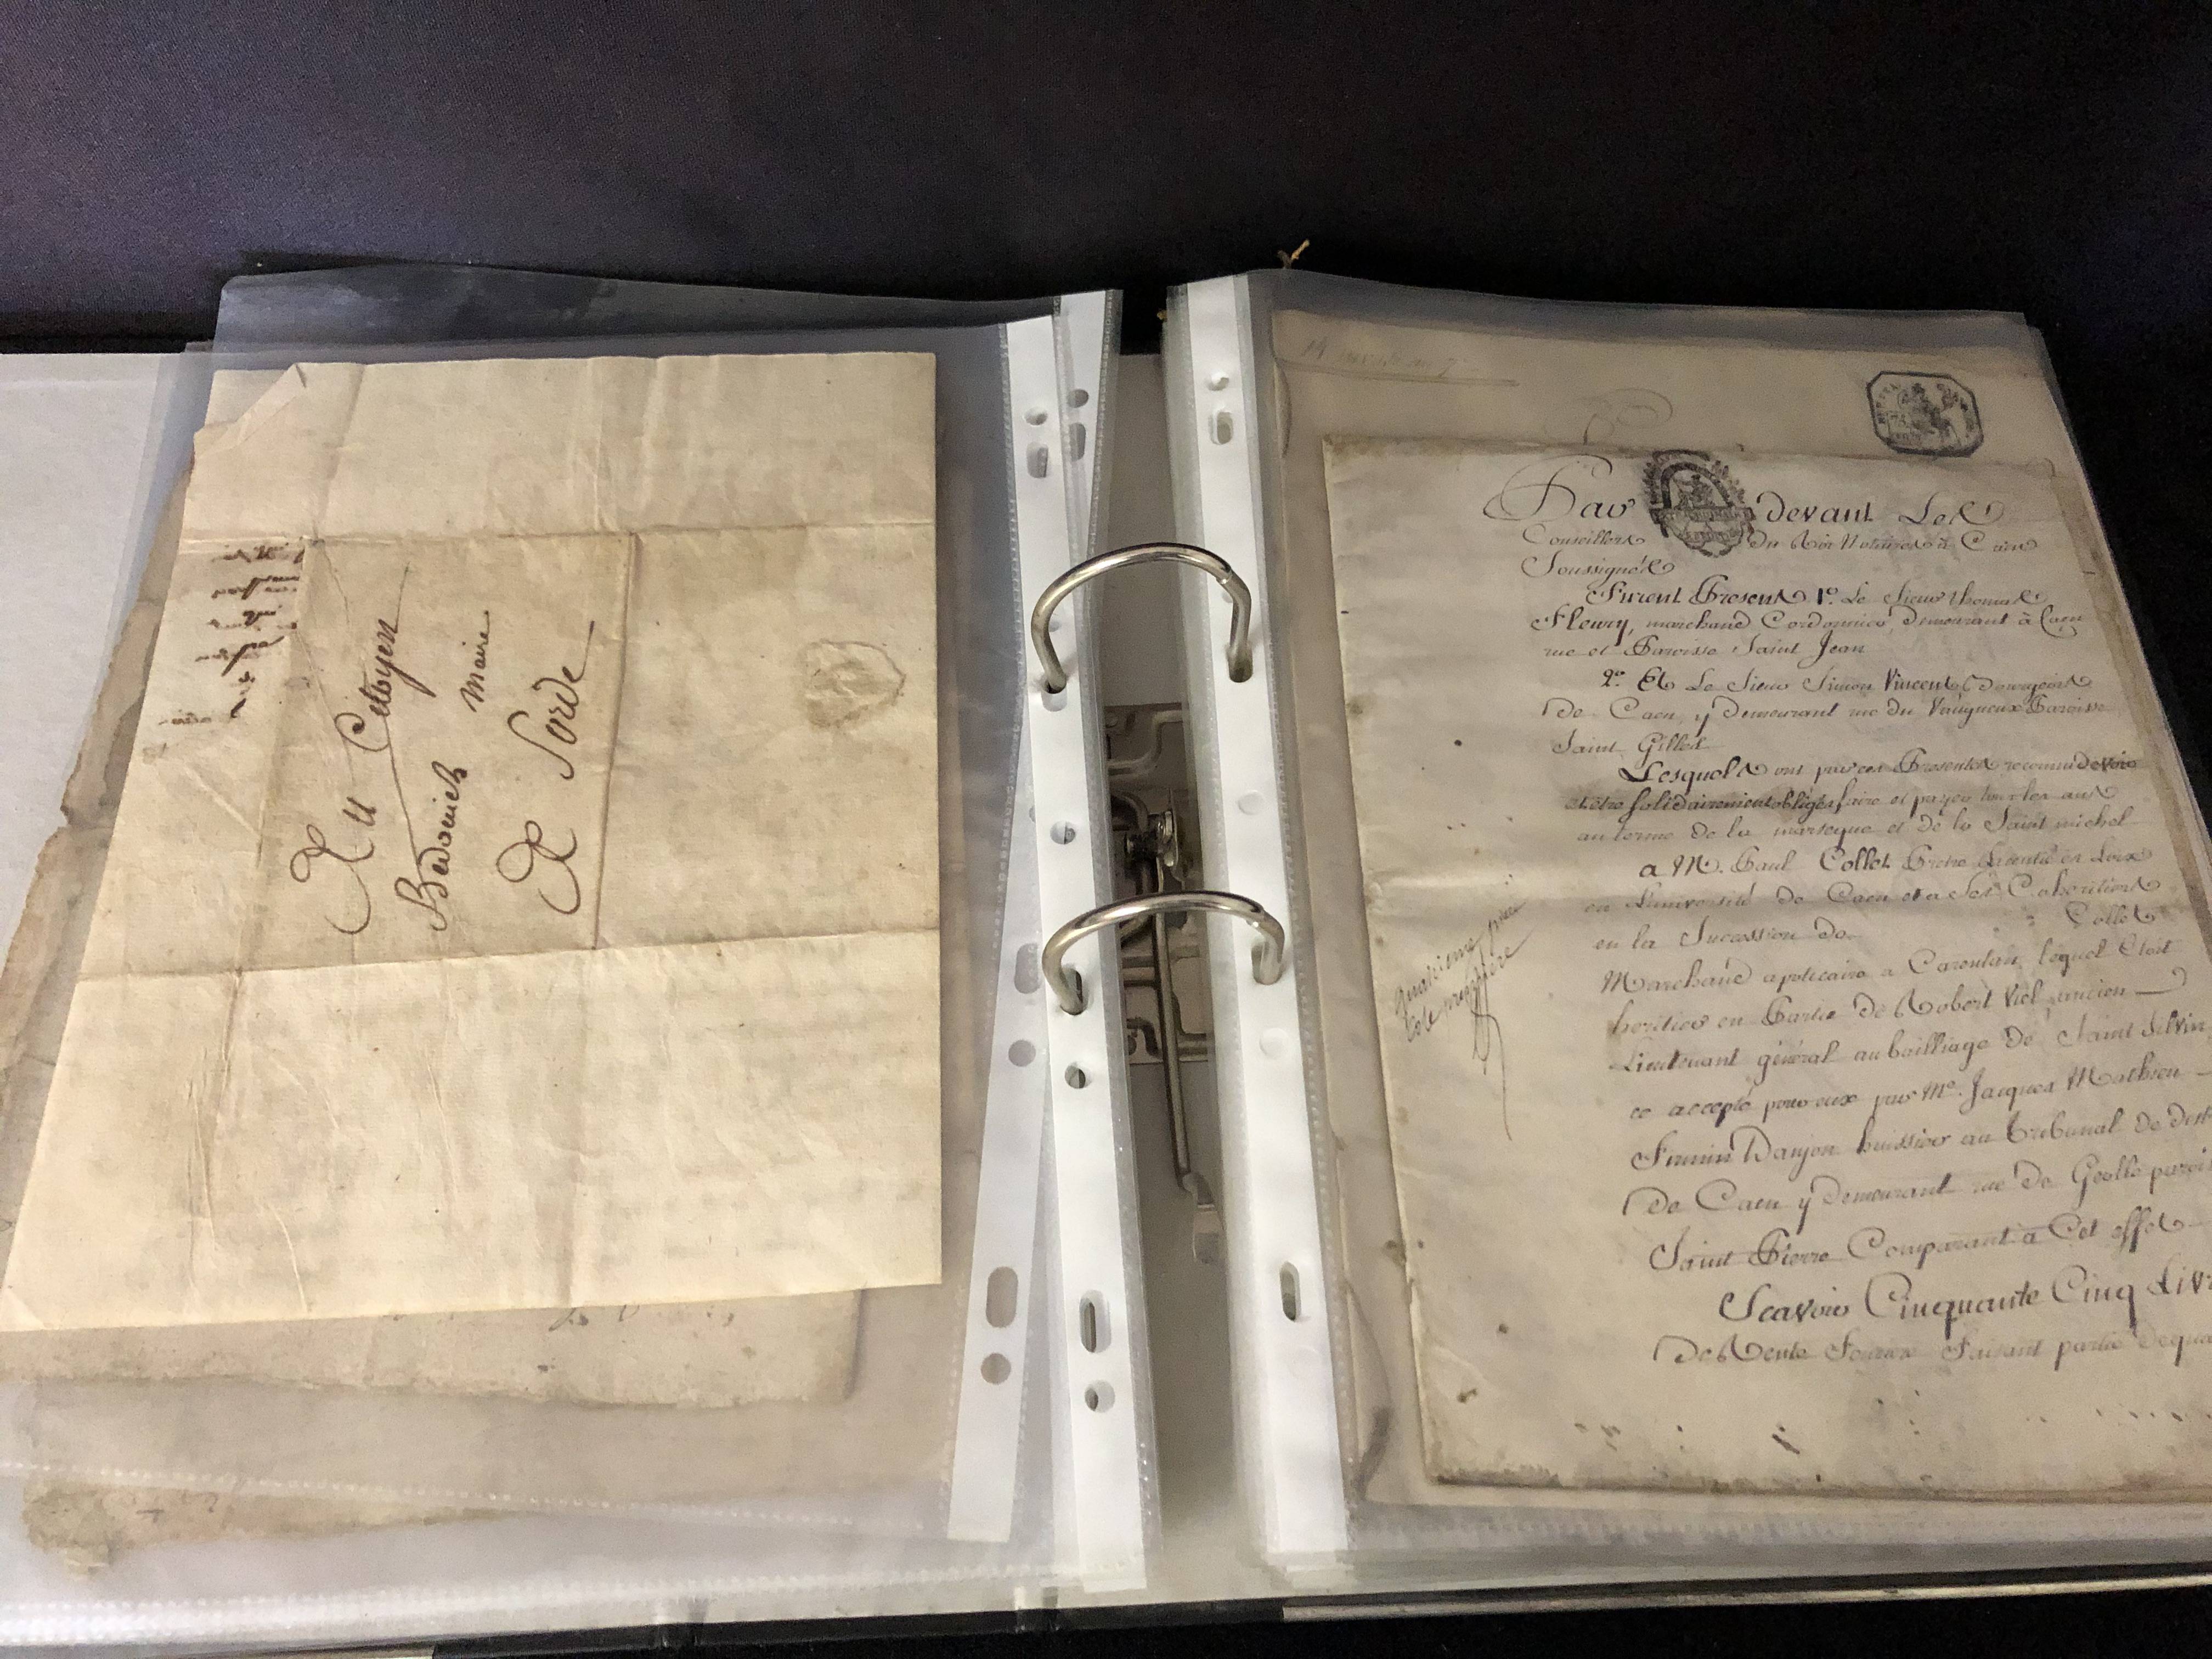 Au Citoyen
maire
A Sorde
Par devant Les
Conseillers du Roi Notaires à Caen
Soussignés
Furent Presents 1º. Le Sieur thomas
Fleury, marchand Cordonnier, demeurant à Caen
rue et Paroisse Saint Jean
2º. Et Le Sieur Simon Vincent, Bourgeois
De Caen, y demeurant rue du Vaugueux Paroisse
Saint Gilles
Lesquels ont par ces Presentes reconnu devoir
et être solidairement obligés faire et payer tous les ans
au terme de la et de la Saint michel
a M. Paul Collet Prêtre Licentié en Loix
en Luniversité de Caen et a ses Coheritiers
en la Sucession de Collet
Marchand apoticaire a Carentan, lequel Etoit
heritier en Partie de Robert Viel, ancien
Lieutenant général au bailliage de Saint Silvin
ce accepté pour eux par Me. Jacques Mathieu
Firmin Danjon huissier au tribunal de dist
De Caen y demeurant rue de Geolle parois
Saint Pierre Comparant a Cet effet
Scavoir Cinquante Cinq Livr
De Rente Fonciere Faisant partie de qua